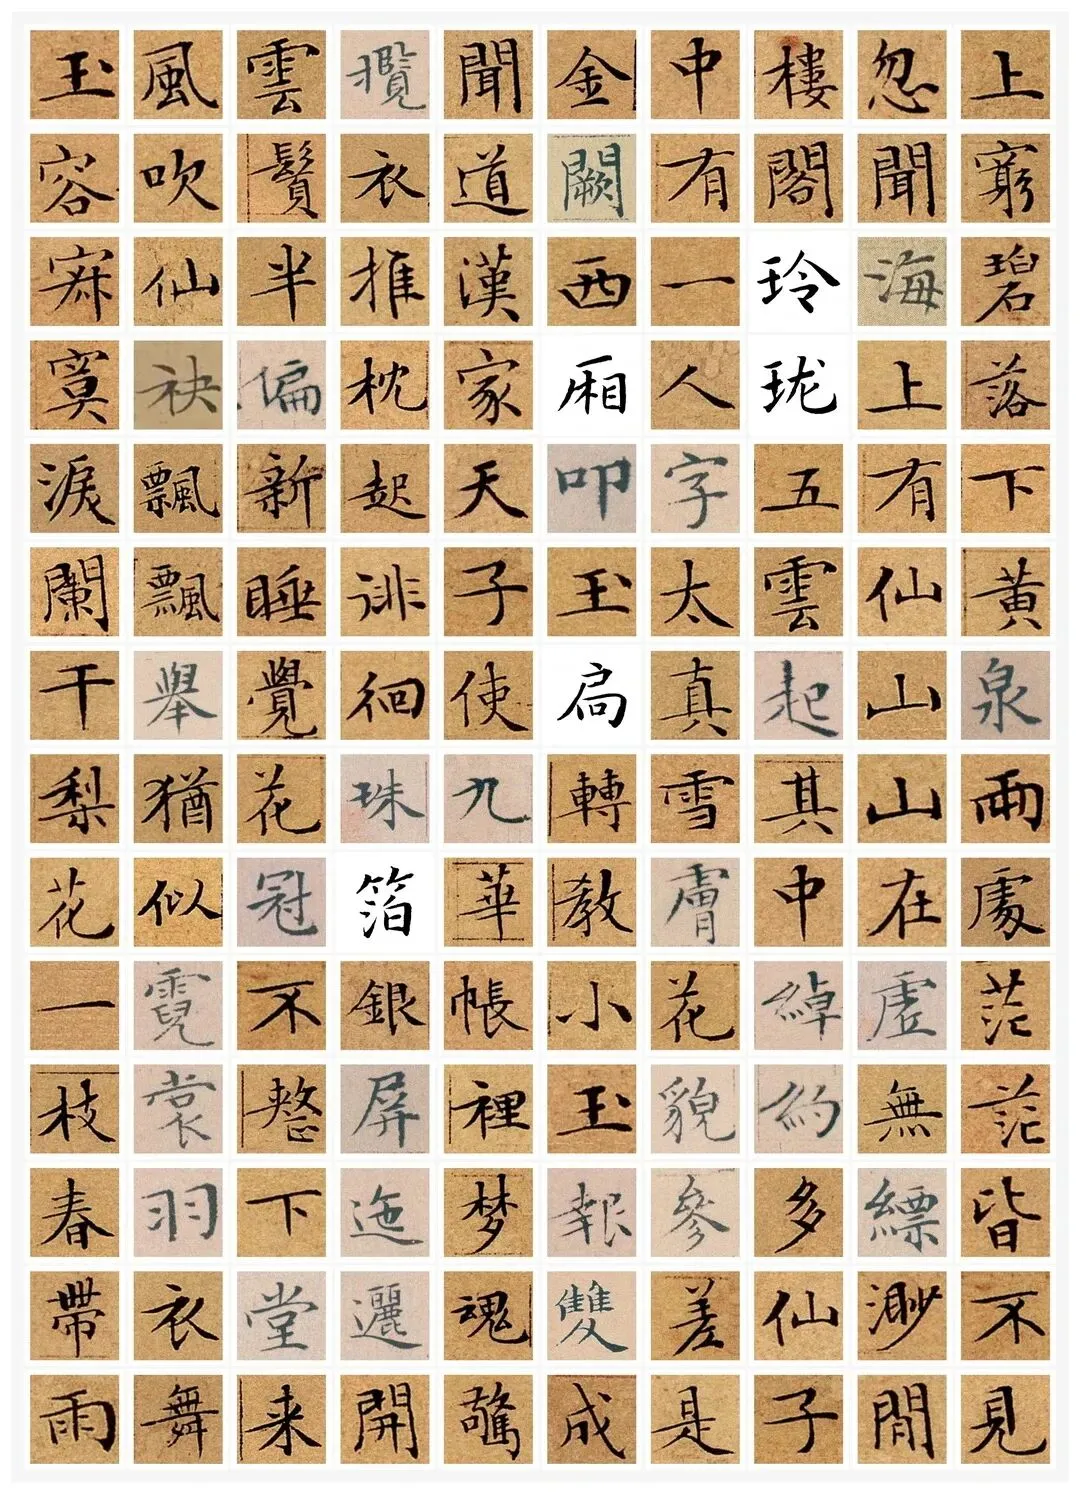 上窮碧落下黃泉兩處茫茫皆不見
忽聞海上有仙山山在虛無縹渺間
樓閣玲珑五雲起其中綽約多仙子
中有一人字太真雪膚花貌參差是
金闕西厢叩玉扃轉教小玉報雙成
聞道漢家天子使九華帳裡梦魂驚
攬衣推枕起徘徊珠箔銀屏迤邐開
雲鬢半偏新睡覺花冠不整下堂来
風吹仙袂飄飄舉猶似霓裳羽衣舞
玉容寂寞淚闌干梨花一枝春帶雨